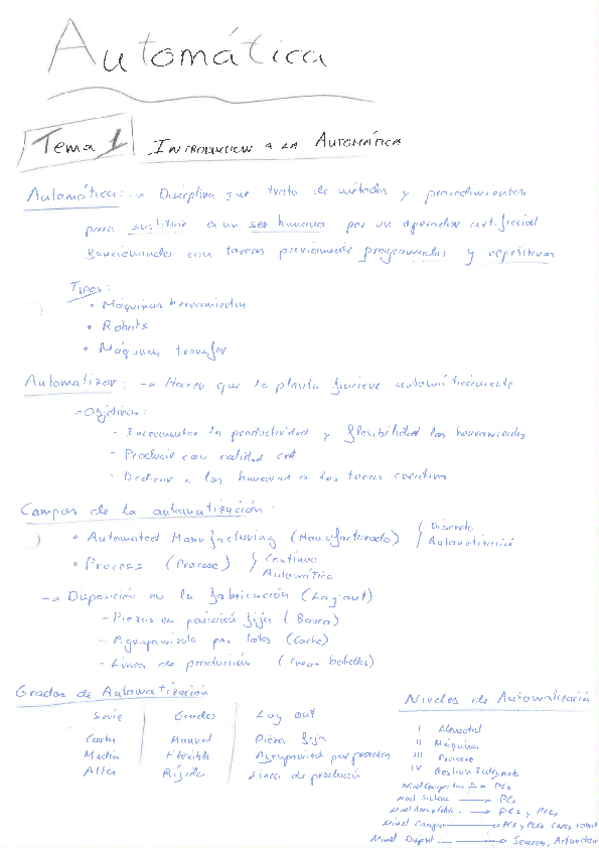 Automática
Tema 1 INTRODUCCION A LA AUTOMÁTICA
Automática: → Disciplina que trata de métodos y procedimientos
para sustituir a un ser humano por un operador artificial
funcionando con tareas previamente programadas y repetitivas
Tipos:
• Máquinas herramientas
• Robots
• Máquinas transfer
Automatizar: → Hacer que la planta funcione automáticamente
- Objetivos:
- Incrementar la productividad y flexibilidad las herramientas
- Producir con calidad
- Dedicar a los humanos a las tareas creativas
Campos de la automatización:
• Automated Manufacturing (Manufacturado) { Discreto
Automatización
• Process (Proceso) { Continuo
Automática
→ Disposición en la fabricación (Lay out)
- Piezas en posición fija (Barco)
- Agrupamiento por lotes (Coche)
- Línea de producción (botellas)
Grados de Automatización
Serie Grados Lay out
Corta Manual Pieza fija
Media Flexible Agrupamient por proceso
Alta Rígida Línea de producción
Niveles de Automatizació
I Elemental
II Máquina
III Proceso
IV Gestión Integrada
→ PCs
Nivel Sistema → PCs
→ PCs y PLCs
Nivel Campo → PCs y PLCs CNCs robot
Nivel Disposit → Sensores, Actuador